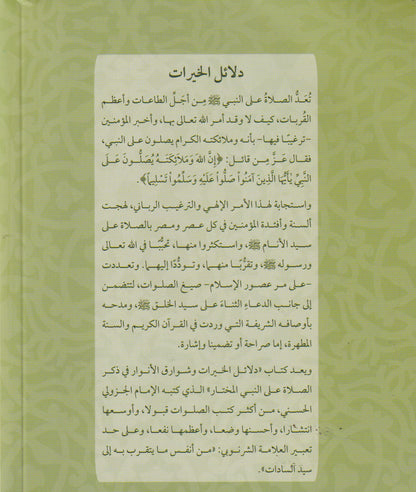 دلائل الخيرات
تُعَدُّ الصلاةُ على النبي ﷺ مِن أجَلِّ الطاعات وأعظم
القُربات، كيف لا وقد أمر الله تعالى بها، وأخبر المؤمنين
-ترغيبًا فيها- بأنه وملائكته الكرام يصلون على النبي،
فقال عَزَّ مِن قائل: ﴿إِنَّ اللهَ وَمَلَائِكَتَهُ يُصَلُّونَ عَلَى
النَّبِيِّ يَأَيُّهَا الَّذِينَ آمَنُواْ صَلُّواْ عَلَيْهِ وَسَلِّمُواْ تَسْلِيمًا﴾.
واستجابة لهذا الأمر الإلهي والترغيب الرباني، لهجت
ألسنة وأفئدة المؤمنين في كل عصر ومصر بالصلاة على
سيد الأنام ﷺ، واستكثروا منها، تحبُّبًا في الله تعالى
ورسوله ﷺ، وتقرُّبًا منهما، وتودُّدًا إليهما. وتعددت
-على مر عصور الإسلام- صيغ الصلوات، لتتضمن
إلى جانب الدعاءِ الثناءَ على سيد الخلق ﷺ، ومدحه
بأوصافه الشريفة التي وردت في القرآن الكريم والسنة
المطهرة، إما صراحة أو تضمينا وإشارة.
ويعد كتاب «دلائل الخيرات وشوارق الأنوار في ذكر
الصلاة على النبي المختار» الذي كتبه الإمام الجزولي
الحسني، من أكثر كتب الصلوات قبولا، وأوسعها
انتشارا، وأحسنها وضعا، وأعظمها نفعا، وعلى حد
تعبير العلامة الشرنوبي: «من أنفس ما يتقرب به إلى
سيد السادات».